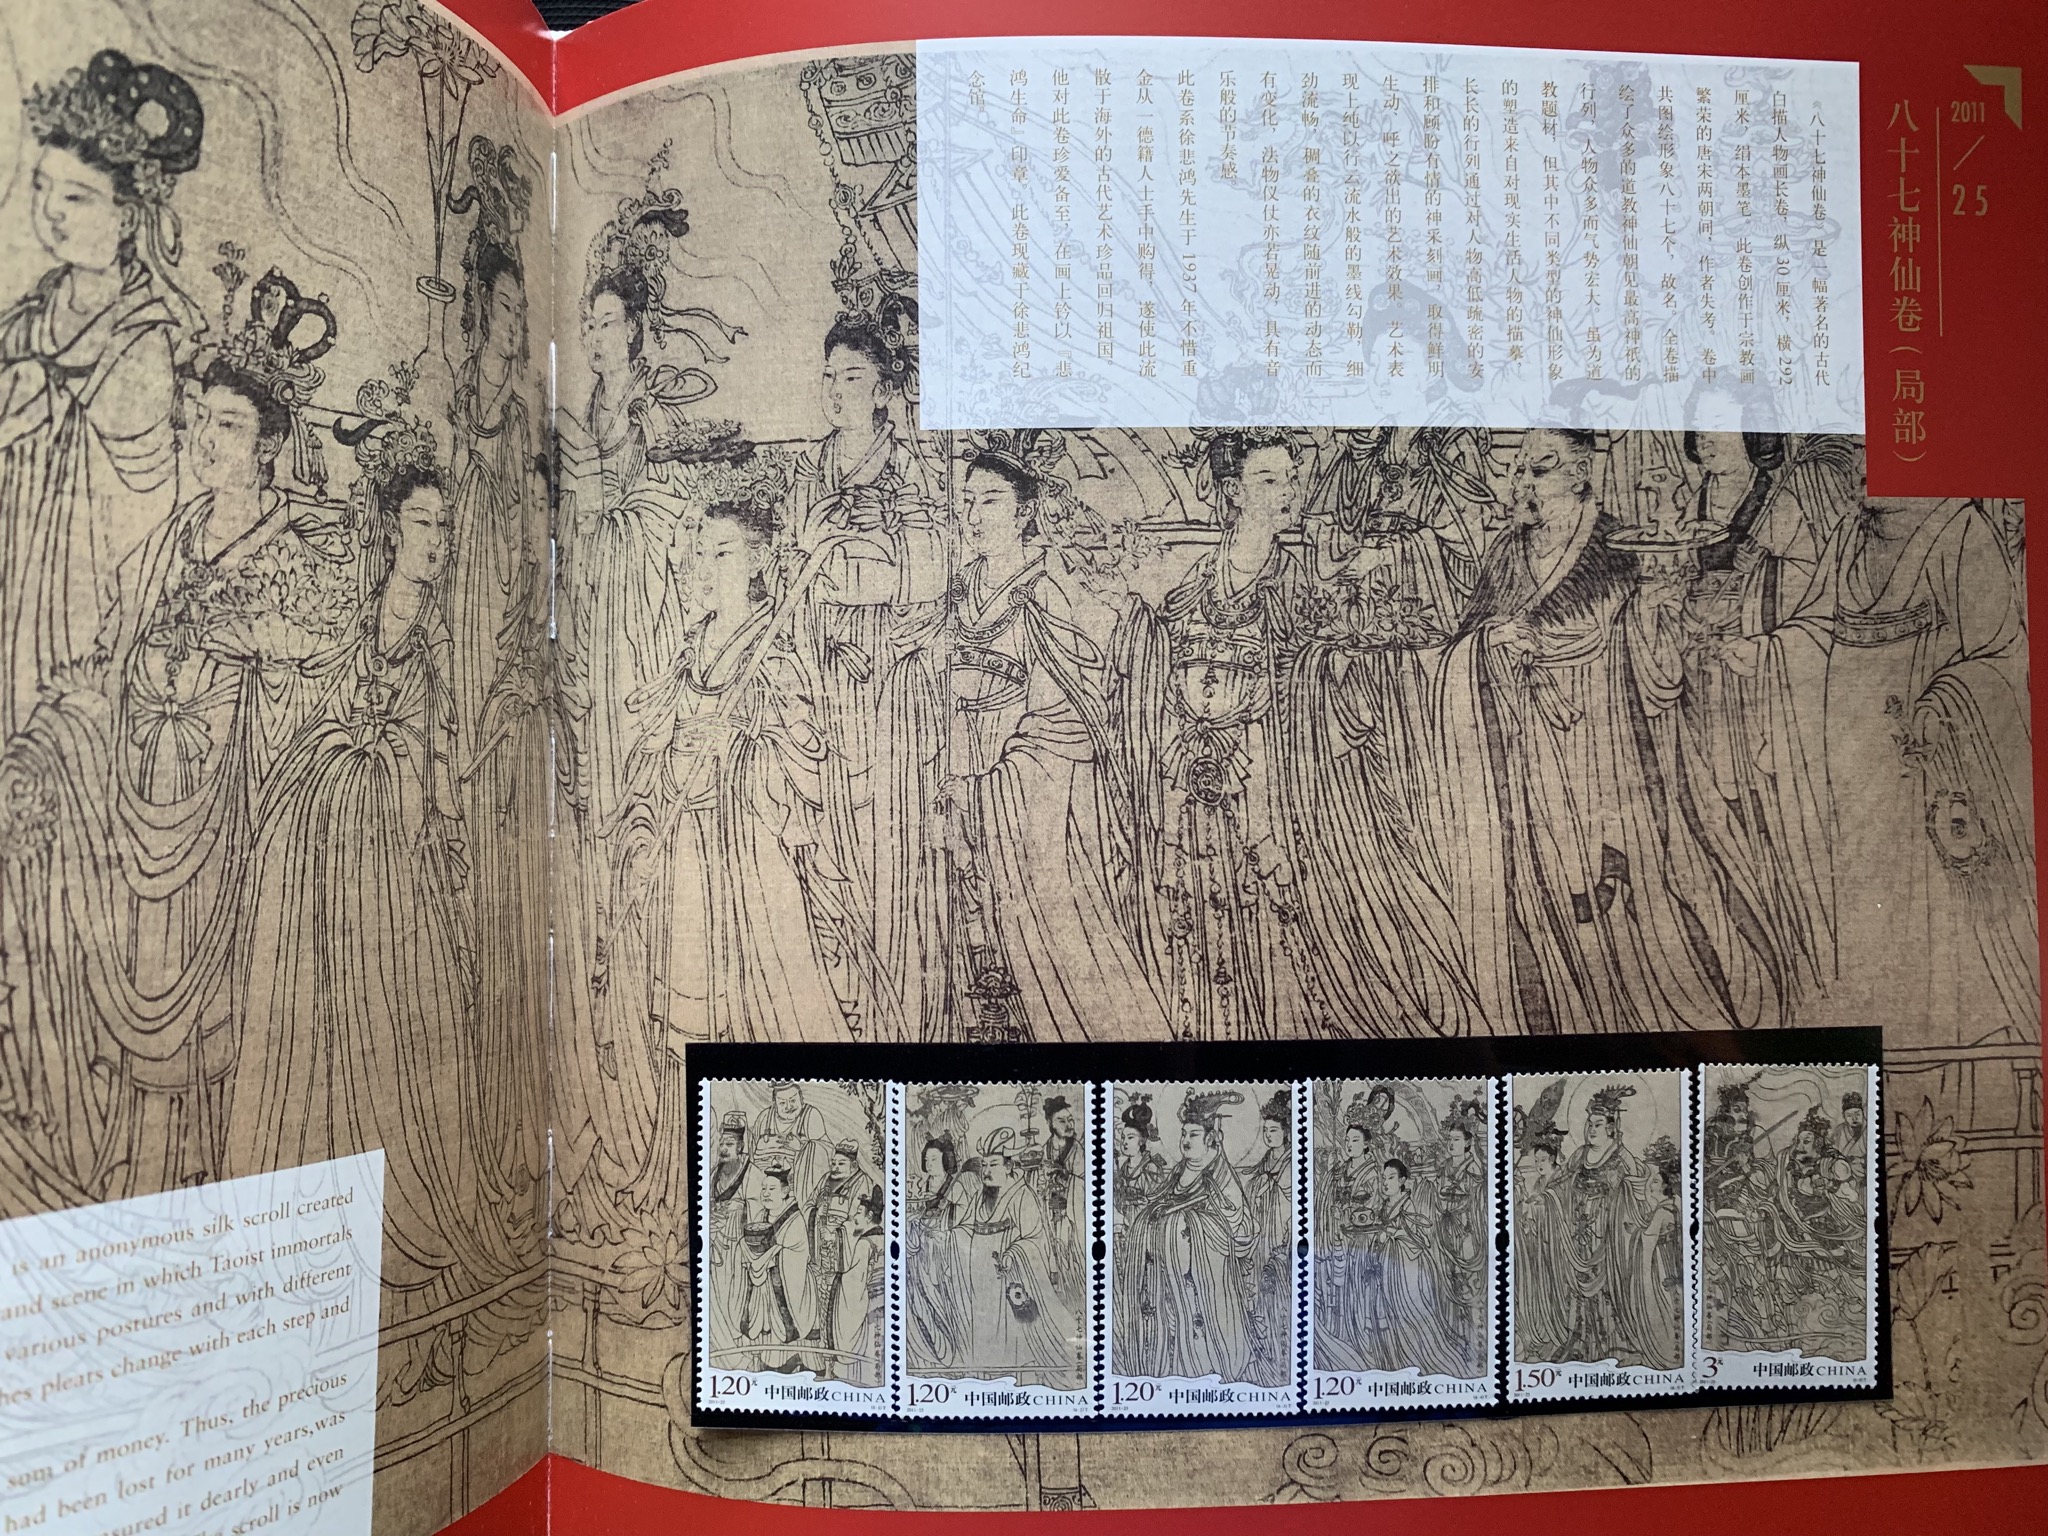 2011/25
八十七神仙卷（局部）
《八十七神仙卷》是一幅著名的古代
白描人物画长卷，纵30厘米，横292
厘米，绢本墨笔。此卷创作于宗教画
繁荣的唐宋两朝间，作者失考。卷中
共图绘形象八十七个，故名。全卷描
绘了众多的道教神仙朝见最高神祇的
行列，人物众多而气势宏大。虽为道
教题材，但其中不同类型的神仙形象
的塑造来自对现实生活人物的描摹，
长长的行列通过对人物高低疏密的安
排和顾盼有情的神采刻画，取得鲜明
生动、呼之欲出的艺术效果。艺术表
现上纯以行云流水般的墨线勾勒，细
劲流畅，稠叠的衣纹随前进的动态而
有变化，法物仪仗亦若晃动，具有音
乐般的节奏感。
此卷系徐悲鸿先生于1937年不惜重
金从一德籍人士手中购得，遂使此流
散于海外的古代艺术珍品回归祖国。
他对此卷珍爱备至，在画上钤以『悲
鸿生命』印章。此卷现藏于徐悲鸿纪
念馆。
is an anonymous silk scroll created
and scene in which Taoist immortals
various postures and with different
hes pleats change with each step and
som of money. Thus, the precious
had been lost for many years,was
asured it dearly and even
scroll is now
1.20元 中国邮政CHINA
1.20元 中国邮政CHINA
1.20元 中国邮政CHINA
1.20元 中国邮政CHINA
1.50元 中国邮政CHINA
3元 中国邮政CHINA